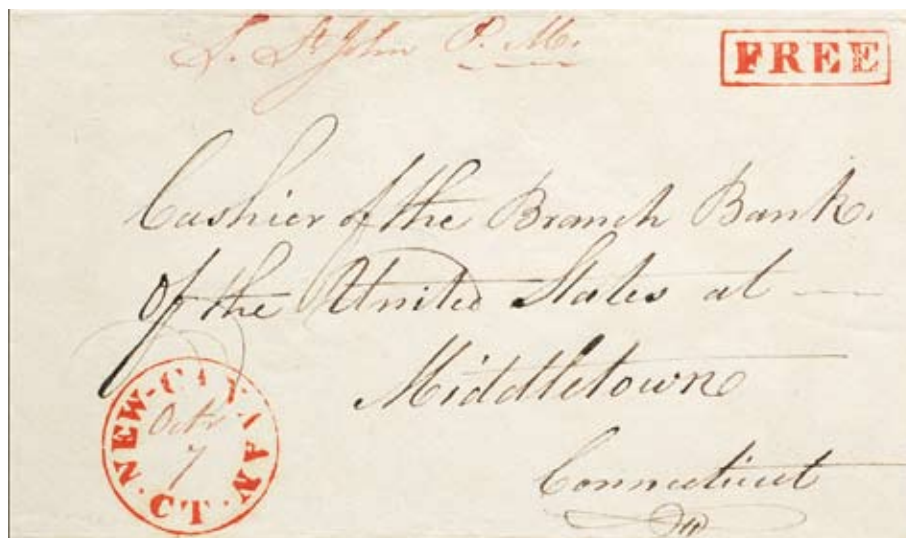 S. St John P. M.
FREE
Cashier of the Branch Bank.
Of the United States at
Middletown
Connecticut
NEW-CANAAN
CT.
Octr
7